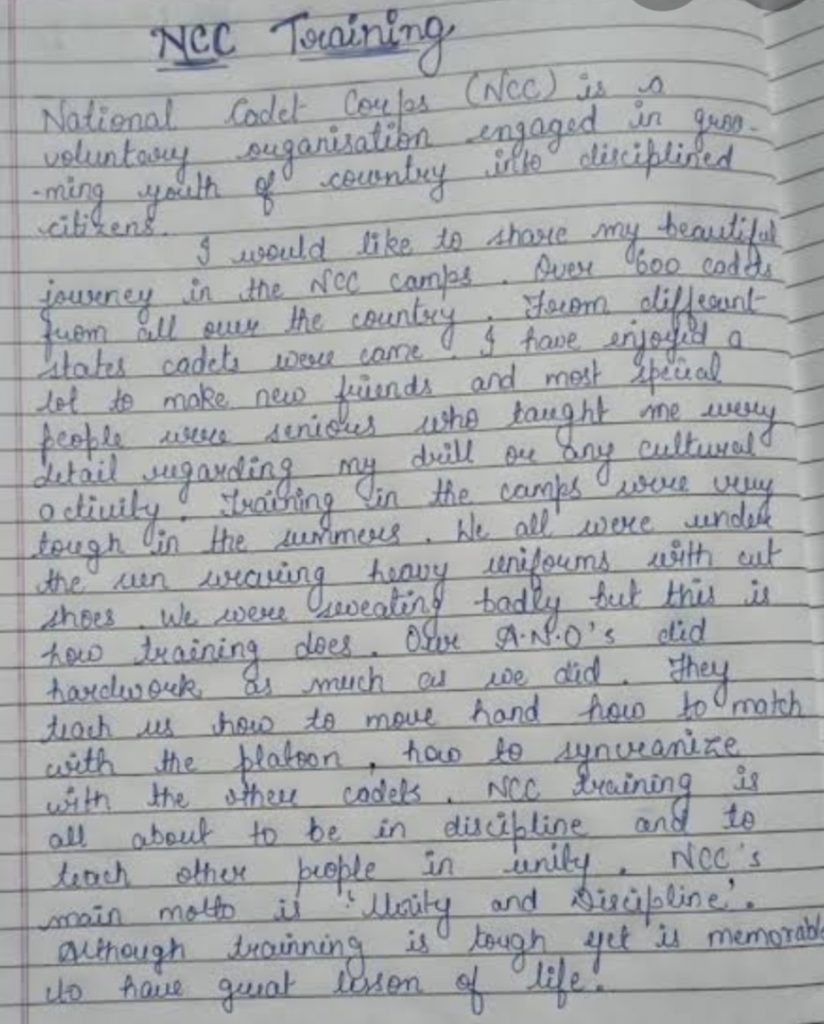 NCC Training
National Cadet Corps (NCC) is a
voluntary organisation engaged in groo-
-ming youth of country into disciplined
citizens.
I would like to share my beautiful
journey in the NCC camps. Over 600 cadets
from all over the country. From different
states cadets were came. I have enjoyed a
lot to make new friends and most special
people were seniors who taught me every
detail regarding my drill or any cultural
activity. Training in the camps were very
tough in the summers. We all were under
the sun wearing heavy uniforms with cut
shoes. We were sweating badly but this is
how training does. Our A.N.O's did
hardwork as much as we did. They
teach us how to move hand how to match
with the platoon, how to syncreanize
with the other cadets. NCC training is
all about to be in discipline and to
teach other people in unity. NCC's
main motto is 'Unity and Discipline'.
Although trainning is tough yet is memorable
to have great lesson of life.